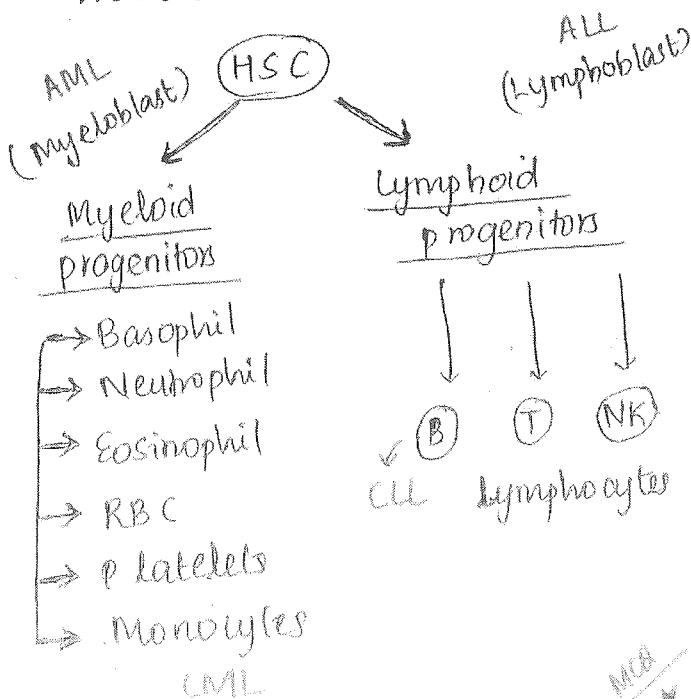 AML
(Myeloblast)
HSC
ALL
(Lymphoblast)
Myeloid
progenitors
Lymphoid
progenitors
Basophil
Neutrophil
Eosinophil
RBC
Platelets
Monocytes
CML
B
T
NK
CLL
Lymphocytes
MCQ